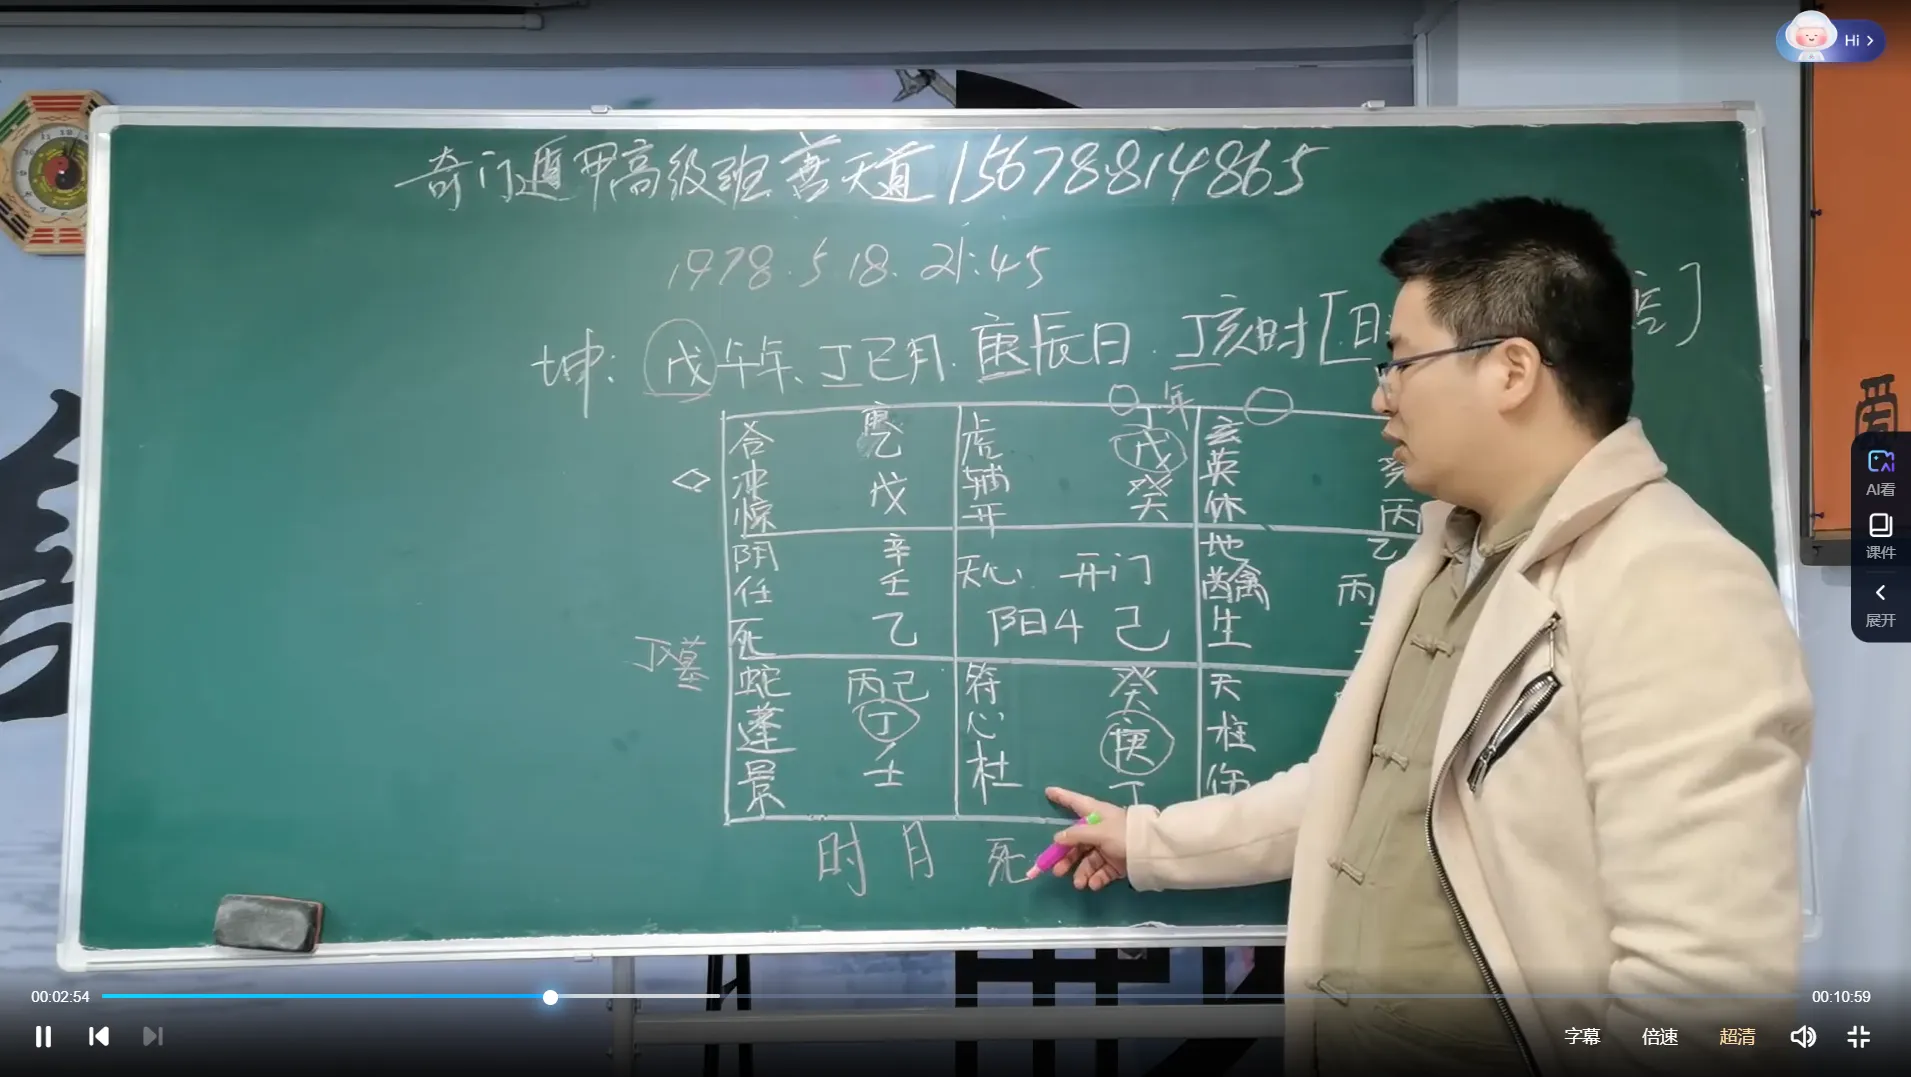 Hi >
奇门遁甲高级班善天道15678814865
1978.5 18. 21:45
坤: 戊午年、丁巳月. 庚辰日. 丁亥时 [日
年
合
冲
惊
戊
虎
辅
开
戊
癸
玄
英
休
丙
阴
任
死
辛
壬
乙
天心 开门
阳4 己
地
芮禽
生
乙
丙
丁墓
蛇
蓬
景
丙己
丁
壬
符
心
杜
癸
庚
丁
天
柱
伤
时 月 死
爱
AI看
课件
展开
00:02:54
00:10:59
字幕 倍速 超清